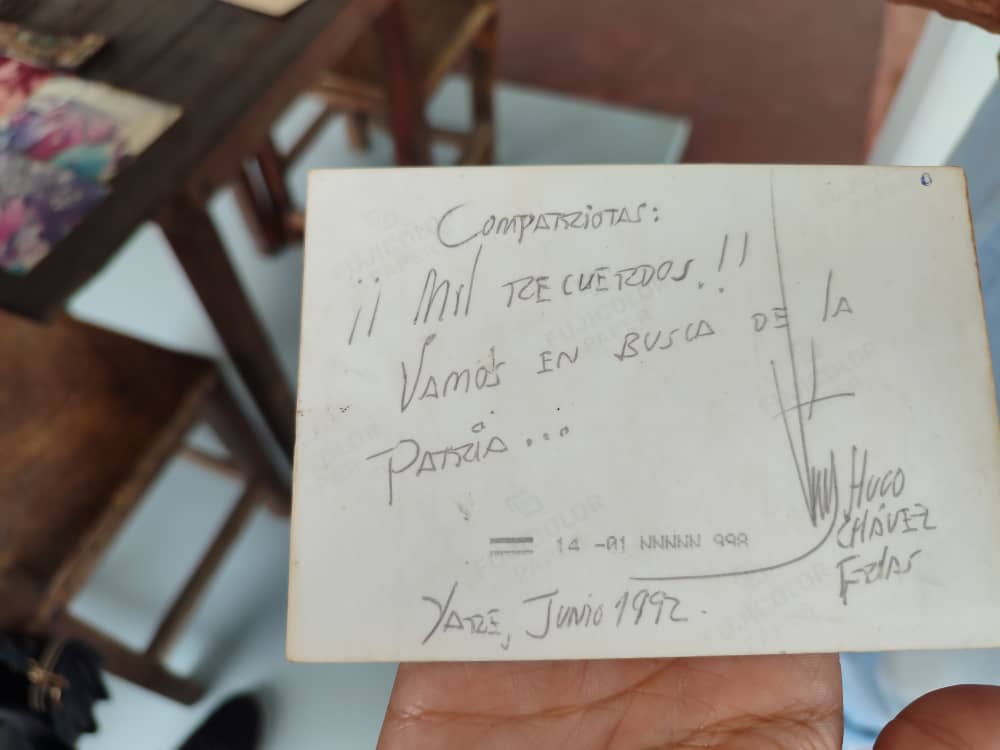 Compatriotas:
¡¡ Mil recuerdos.!!
Vamos en busca de la
Patria...
14 -01 NNNNN 998
Hugo
Chávez
Frías
Yare, Junio 1992.
FUJICOLOR
PAPER